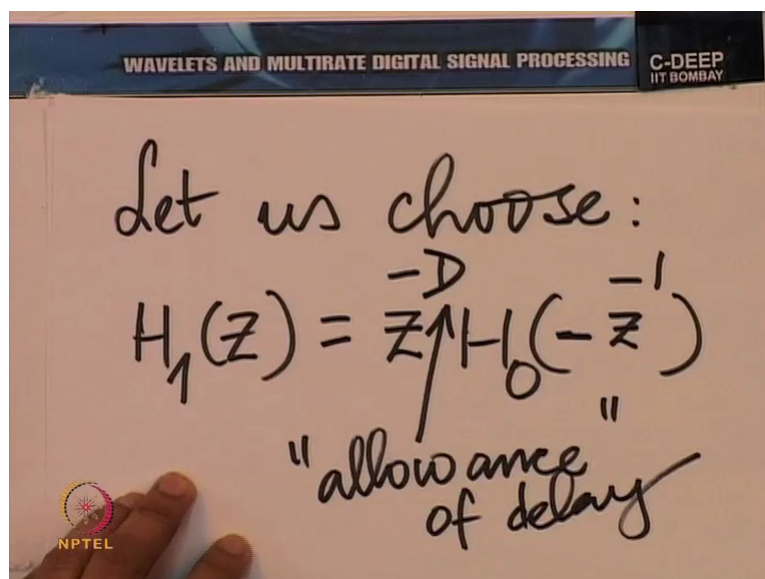 WAVELETS AND MULTIRATE DIGITAL SIGNAL PROCESSING
C-DEEP
IIT BOMBAY
Let us choose:
H₁(Z) = Z^{-D} H₀(-Z^{-1})
"allowance"
of delay
NPTEL